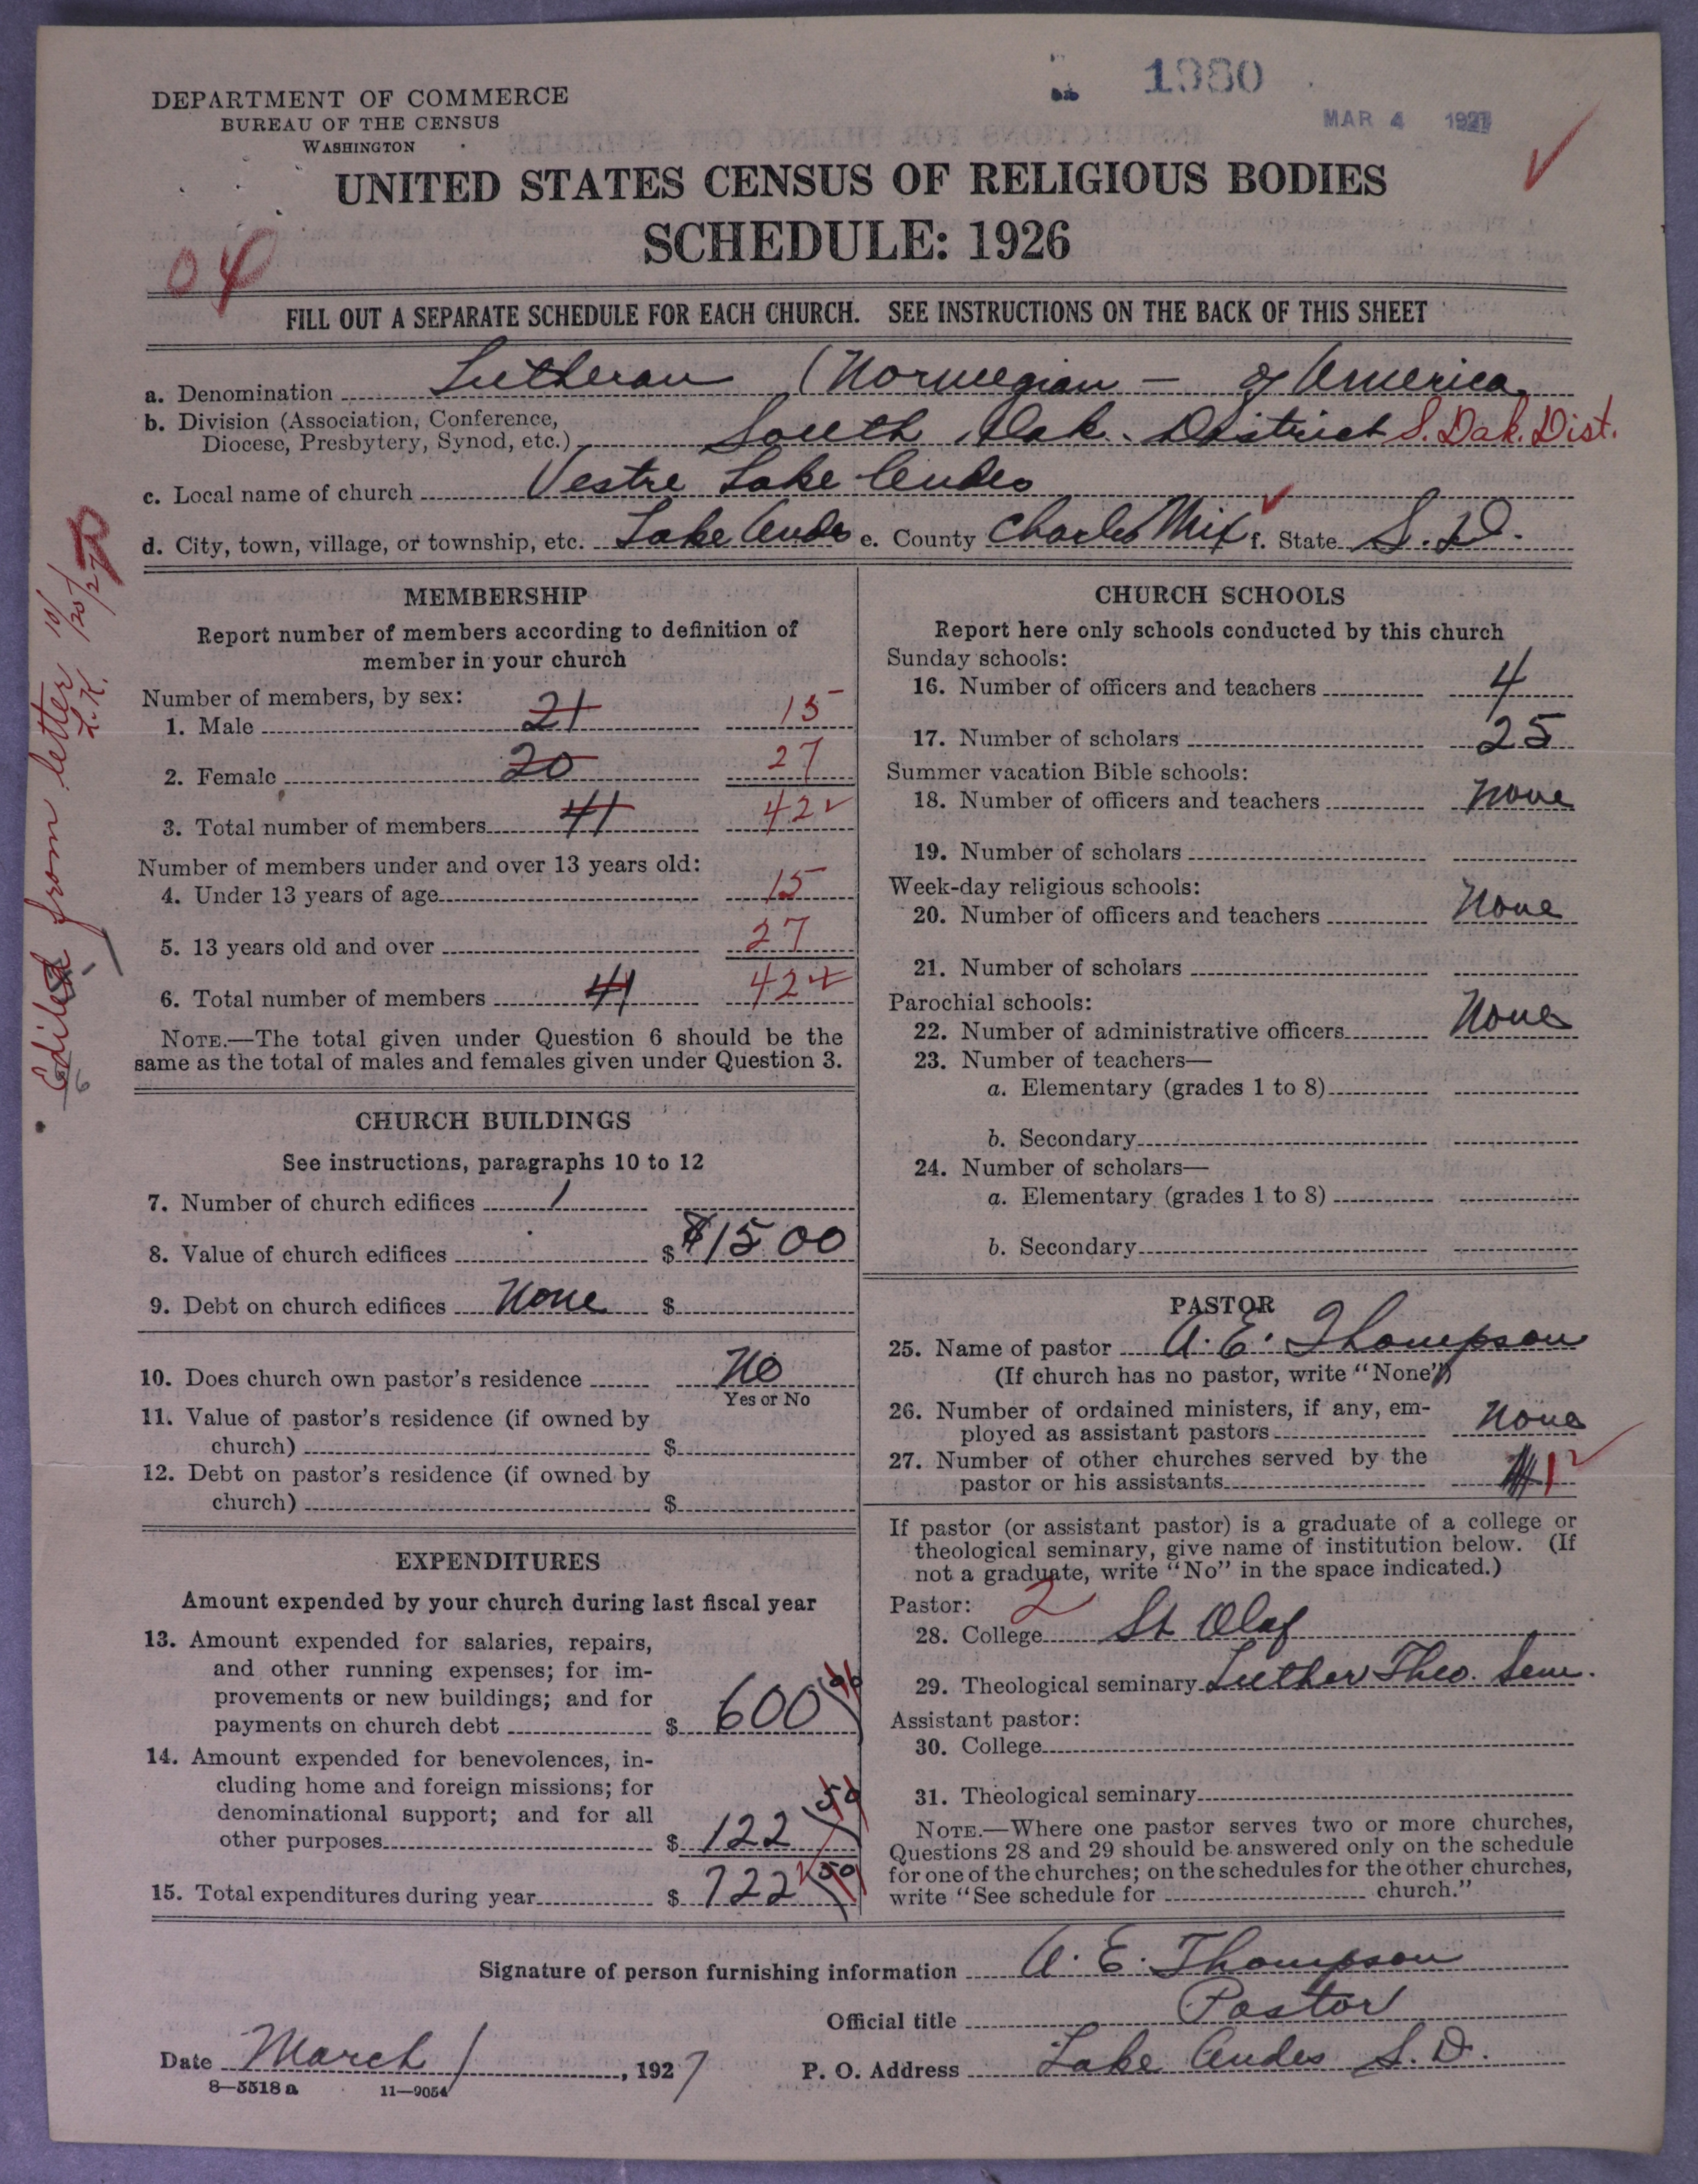 1980
MAR 4 1927
DEPARTMENT OF COMMERCE
BUREAU OF THE CENSUS
WASHINGTON
UNITED STATES CENSUS OF RELIGIOUS BODIES
SCHEDULE: 1926
04
FILL OUT A SEPARATE SCHEDULE FOR EACH CHURCH. SEE INSTRUCTIONS ON THE BACK OF THIS SHEET
a. Denomination Lutheran (Norwegian – of America
b. Division (Association, Conference,
Diocese, Presbytery, Synod, etc.) South Dak. District S. Dak. Dist.
c. Local name of church Vestre Lake Andes
d. City, town, village, or township, etc. Lake Andes e. County Charles Mix f. State S. D.
Edited from letter 10/20/27
L.K.
6
MEMBERSHIP
Report number of members according to definition of
member in your church
Number of members, by sex:
1. Male 21 15
2. Female 20 27
3. Total number of members 41 42
Number of members under and over 13 years old:
4. Under 13 years of age 15
5. 13 years old and over 27
6. Total number of members 41 42
NOTE.—The total given under Question 6 should be the
same as the total of males and females given under Question 3.
CHURCH BUILDINGS
See instructions, paragraphs 10 to 12
7. Number of church edifices 1
8. Value of church edifices $ $1500
9. Debt on church edifices None $
10. Does church own pastor's residence No
Yes or No
11. Value of pastor's residence (if owned by
church) $
12. Debt on pastor's residence (if owned by
church) $
EXPENDITURES
Amount expended by your church during last fiscal year
13. Amount expended for salaries, repairs,
and other running expenses; for im-
provements or new buildings; and for
payments on church debt $ 600 00
14. Amount expended for benevolences, in-
cluding home and foreign missions; for
denominational support; and for all
other purposes $ 122 50
15. Total expenditures during year $ 722 50
CHURCH SCHOOLS
Report here only schools conducted by this church
Sunday schools:
16. Number of officers and teachers 4
17. Number of scholars 25
Summer vacation Bible schools:
18. Number of officers and teachers None
19. Number of scholars
Week-day religious schools:
20. Number of officers and teachers None
21. Number of scholars
Parochial schools:
22. Number of administrative officers None
23. Number of teachers—
a. Elementary (grades 1 to 8)
b. Secondary
24. Number of scholars—
a. Elementary (grades 1 to 8)
b. Secondary
PASTOR
25. Name of pastor A. E. Thompson
(If church has no pastor, write "None")
26. Number of ordained ministers, if any, em-
ployed as assistant pastors None
27. Number of other churches served by the
pastor or his assistants 1
If pastor (or assistant pastor) is a graduate of a college or
theological seminary, give name of institution below. (If
not a graduate, write "No" in the space indicated.)
Pastor: 2
28. College St Olaf
29. Theological seminary Luther Theo. Sem.
Assistant pastor:
30. College
31. Theological seminary
NOTE.—Where one pastor serves two or more churches,
Questions 28 and 29 should be answered only on the schedule
for one of the churches; on the schedules for the other churches,
write "See schedule for church."
Signature of person furnishing information A. E. Thompson
Official title Pastor
Date March 1, 1927 P. O. Address Lake Andes S. D.
8—5518 a 11—9054